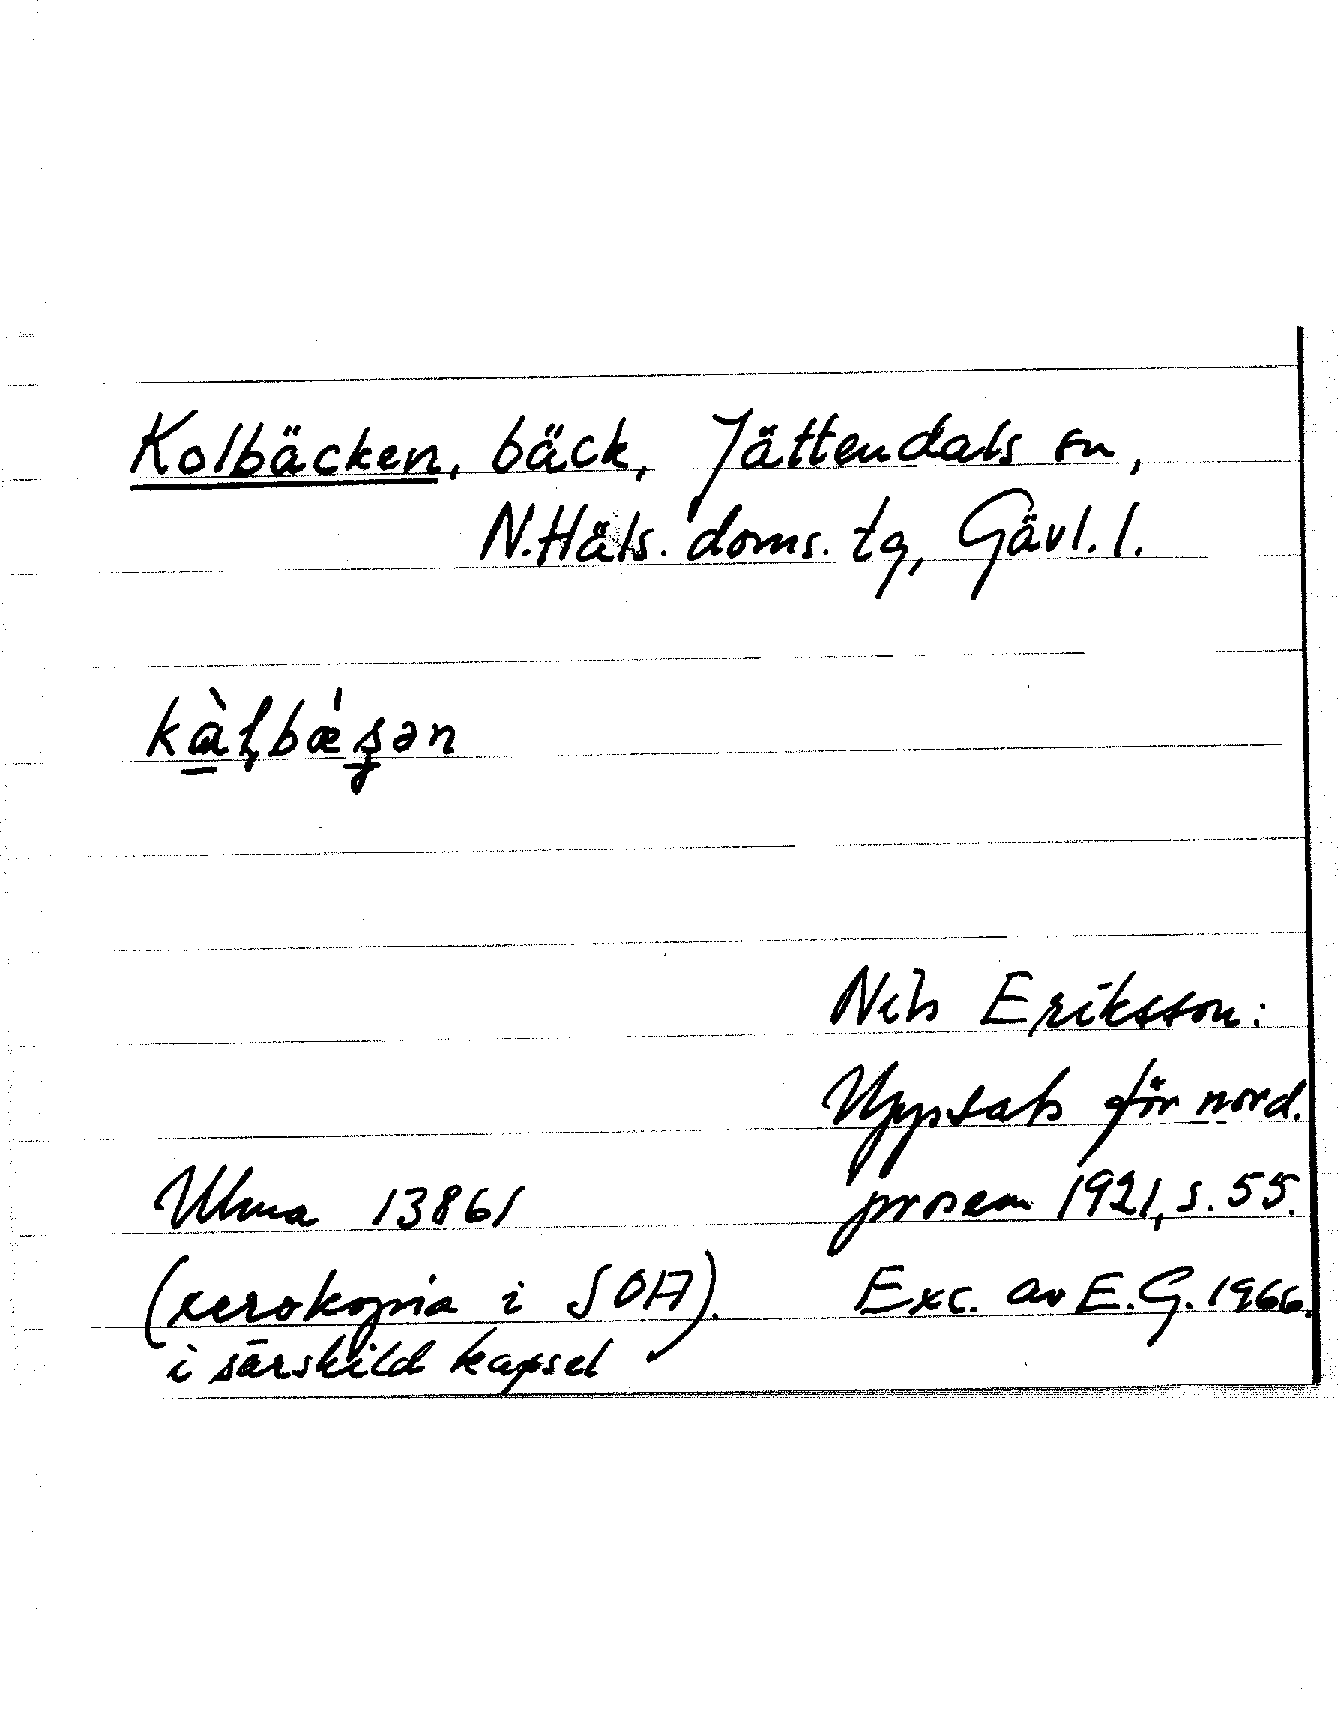 Kolbäcken, bäck, Jättendals sn,
N.Häls. doms. tg, Gävl. l.
Nils Eriksson:
Uppsats för nord.
Ulma 13861 prosem 1921, s. 55.
(xerokopia i SOA). Exc. av E.G. 1966.
i särskild kapsel